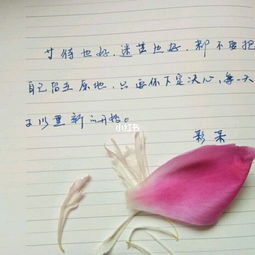 甘侍也好,迷茫也好,都不要把
自己留在原地,只要你下定决心,每一天
可以重新开始。
彩平
小红书